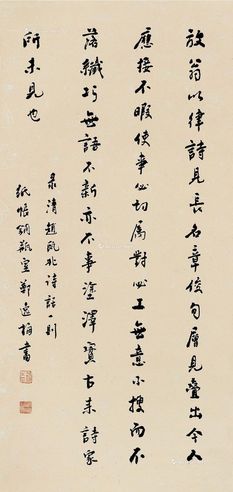 放翁以律詩見長名章俊句層見疊出令人
應接不暇使事必切屬對必工無意不搜而不
落纖巧無語不新亦不事塗澤實古來詩家
所未見也
录清趙甌北诗話一則
紙帐銅瓶室鄭逸梅書